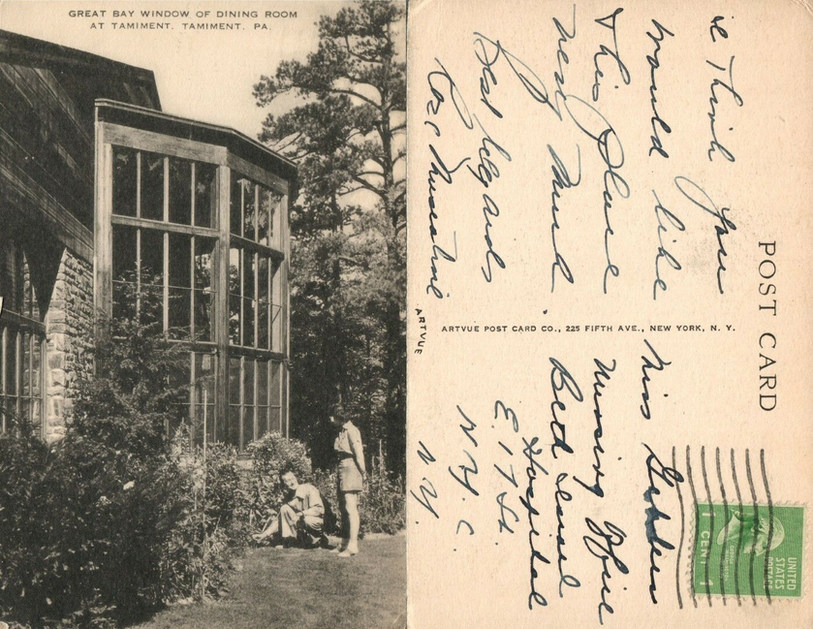 GREAT BAY WINDOW OF DINING ROOM
AT TAMIMENT, TAMIMENT, PA.
POST CARD
I Think you
would like
this place
very much
Best Regards
Rose
ARTVUE POST CARD CO., 225 FIFTH AVE., NEW YORK, N. Y.
ARTVUE
Miss
Nursing Office
Beth Israel
Hospital
E. 17 St.
N. Y. C.
N. Y.
UNITED
STATES
POSTAGE
1 CENT 1